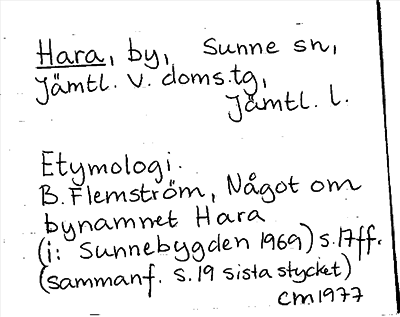 Hara, by, Sunne sn,
Jämtl. v. doms.tg,
Jämtl. l.
Etymologi.
B. Flemström, Något om
bynamnet Hara
(i: Sunnebygden 1969) s. 17ff.
(sammanf. s. 19 sista stycket)
CM 1977